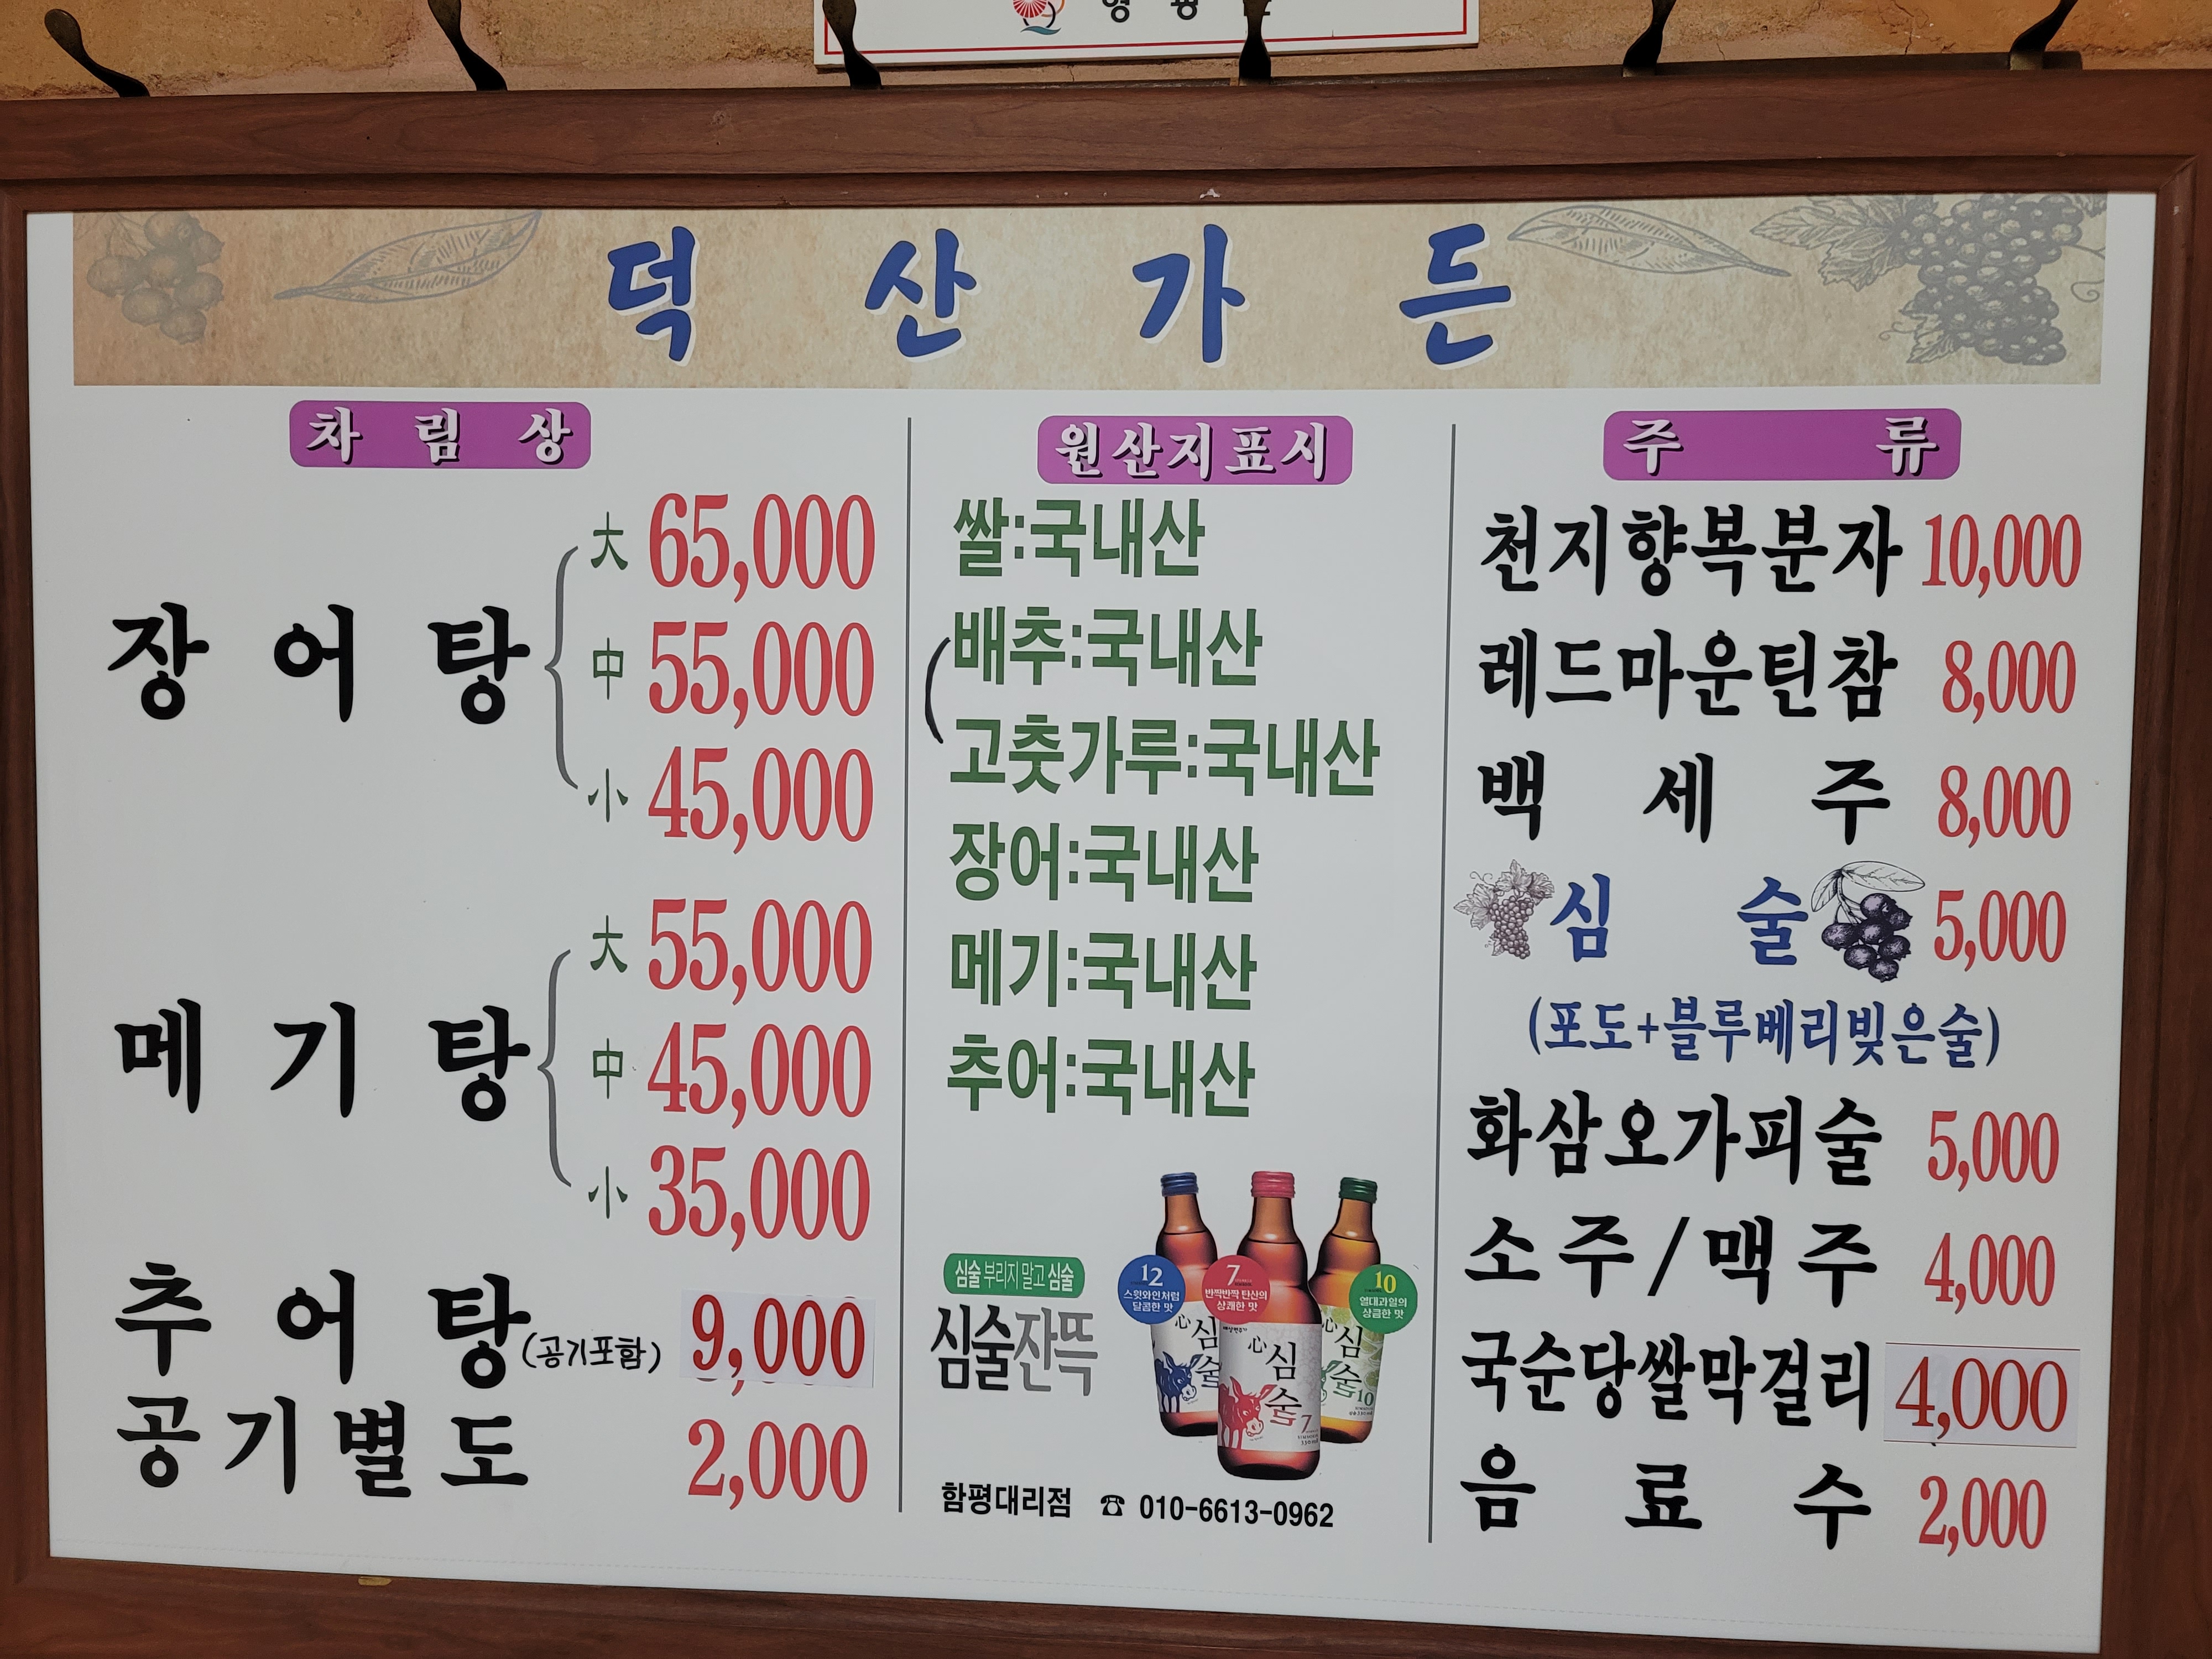 덕산가든
차림상
장어탕
大 65,000
中 55,000
小 45,000
메기탕
大 55,000
中 45,000
小 35,000
추어탕(공기포함) 9,000
공기별도 2,000
원산지표시
쌀:국내산
배추:국내산
고춧가루:국내산
장어:국내산
메기:국내산
추어:국내산
심술 부리지 말고 심술
심술잔뜩
12
스윗와인처럼
달콤한 맛
7
반짝반짝 탄산의
상쾌한 맛
10
열대과일의
상큼한 맛
心 심술
心 심술 7
심술 10
함평대리점 ☎ 010-6613-0962
주류
천지향복분자 10,000
레드마운틴참 8,000
백세주 8,000
심술 5,000
(포도+블루베리빚은술)
화삼오가피술 5,000
소주/맥주 4,000
국순당쌀막걸리 4,000
음료수 2,000